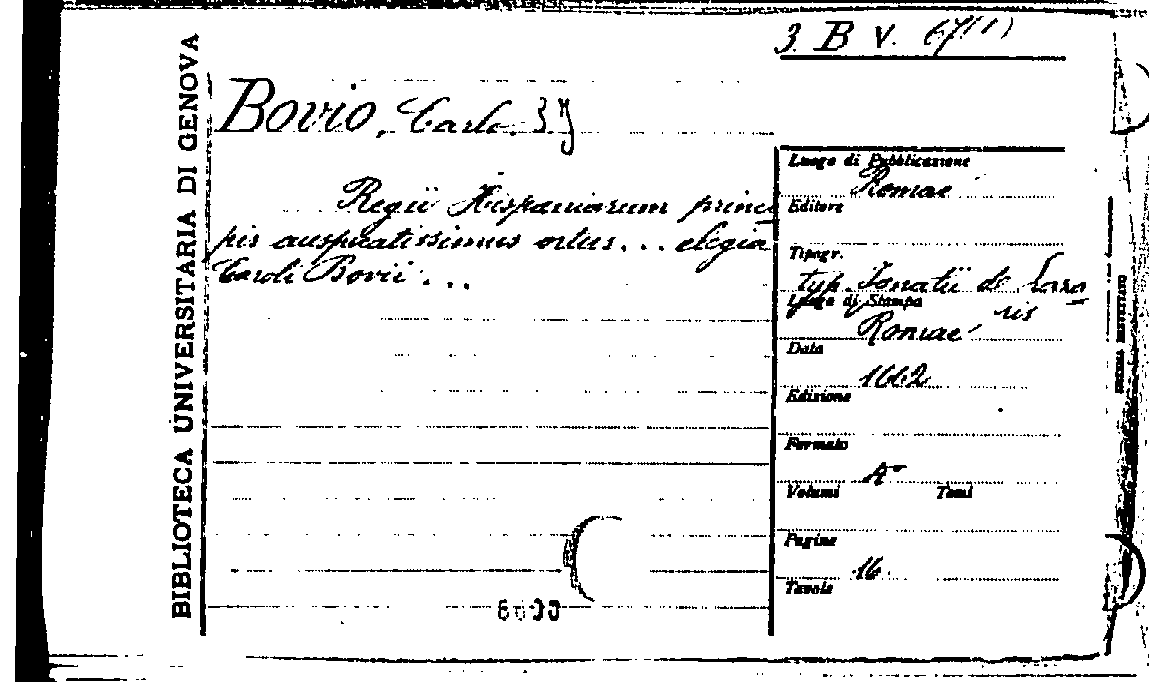 3. B V. 67(1)
BIBLIOTECA UNIVERSITARIA DI GENOVA
Bovio, Carlo. SJ
Regii Hispaniarum princi
pis auspicatissimus ortus... elegia
Caroli Bovii...
Luogo di Pubblicazione
Romae
Editore
Tipogr.
typ. Ignatii de Laza
ris
Luogo di Stampa
Romae
Data
1662
Edizione
Formato
4°
Volumi Tomi
Pagine
16
Tavole